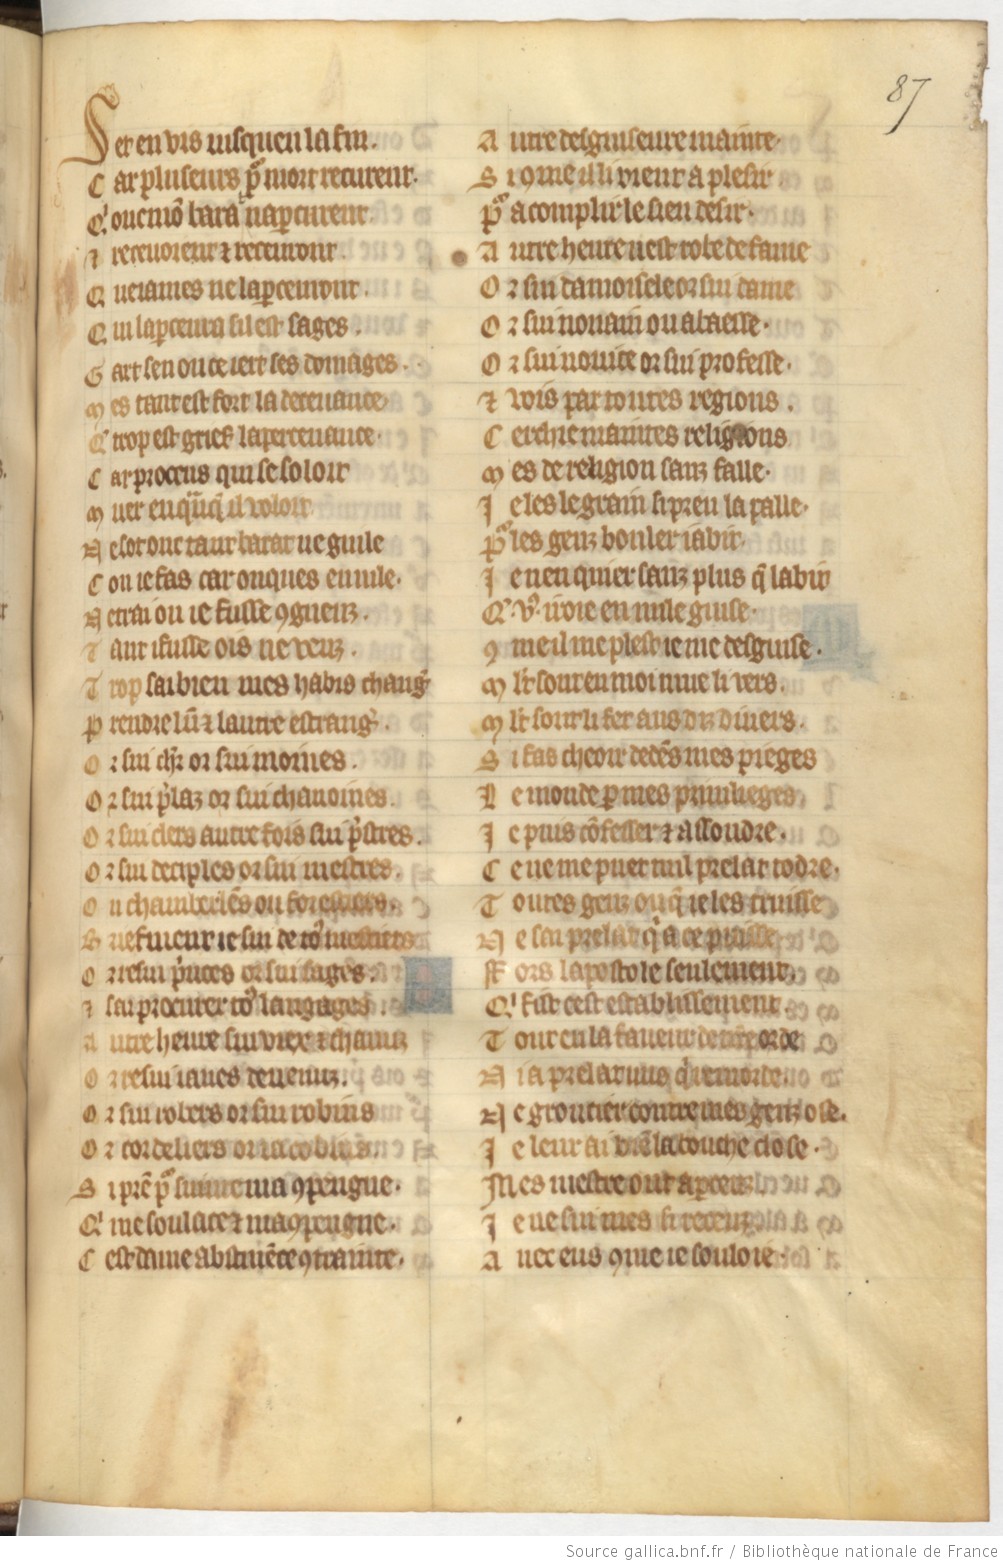 87
Set en vis iusqueu la fin.
Car pluseurs pͬ mort recurent.
Qͥ onc mō barat naꝑcurent
⁊ recevoient ⁊ recevront.
Que iames ne laꝑcevront.
Qui laꝑcevra sil est sages.
Gart sen ou ce iert ses domages.
Mes tant est fort la decevance
Qͥ trop est grief lapercevance.
Car protheus qui se soloit
Muer en qͣnqͥl voloit
Ne sot onc tant barat ne guile
Con ie fas car onques en vile.
Nentrai ou ie fusse ꝯgneuz.
Tant i fusse ois ne veuz.
Trop sai bien mes habis changͬ
Prendre lū ⁊ lautre estrangͬ.
Or sui chͬr or sui moines.
Or sui pͬlaz or sui chanoines.
Or sui clers autre fois sui pͬstres.
Or sui deciples or sui mestres.
Ou chastelēs ou forestiers.
Briefment ie sui de toͯ mestiers
Or resui pͥnces or sui pages.
⁊ sai procurer toͯ langages.
Autre heure sui viex ⁊ chanuz
Or resui iaines devenuz.
Or sui robers or sui robins
Or cordeliers or iacobins.
Si prē pͬ suivre ma ꝯpengne.
Qͥ me soulace ⁊ maꝯpengne.
Cest dame abstinēce ꝯtrainte.
Autre desguiseure mainte.
Si ꝯme il li vient a plesir
Pͬ acomplir le sien desir.
Autre heure vest robe de fame
Or sui damoisele or sui dame
Or sui nonain ou abaesse.
Or sui novice or sui professe.
⁊ vois par toutes regions.
Cerchie maintes religions
Mes de religion sanz falle.
Je les le grain si pren la palle.
Pͬ les genz bouler i abit.
Je nen quier sanz plus qͥ labit
ꝯme il me plest ie me desguise.
Mlt sont en moi mue li vers.
Mlt sont li fet aus diz divers.
Si fas cheoir dedēs mes pieges
Le monde ꝑ mes privileges
Je puis cōfesser ⁊ assoudre.
Ce ne me puet nul prelat todre.
Toutes genz ou qͥ ie les truisse
Ne sai prelat qͥ ce puisse
Fors lapostole seulement.
Qͥ fist cest establissement
Tout en la faveur de nr̄e orde
Ni a prelat nus qͥ remorde.
Ne groucier contre mes genz ose.
Je leur ai biē la bouche close.
Mes mestre ont aperceuz.
Je ne sui mes si receuz
Avec eus ꝯme ie souloie.
Source gallica.bnf.fr / Bibliothèque nationale de France